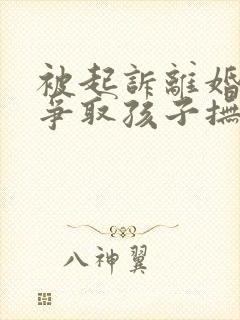 被起訴離婚
爭取孩子撫
八神翼